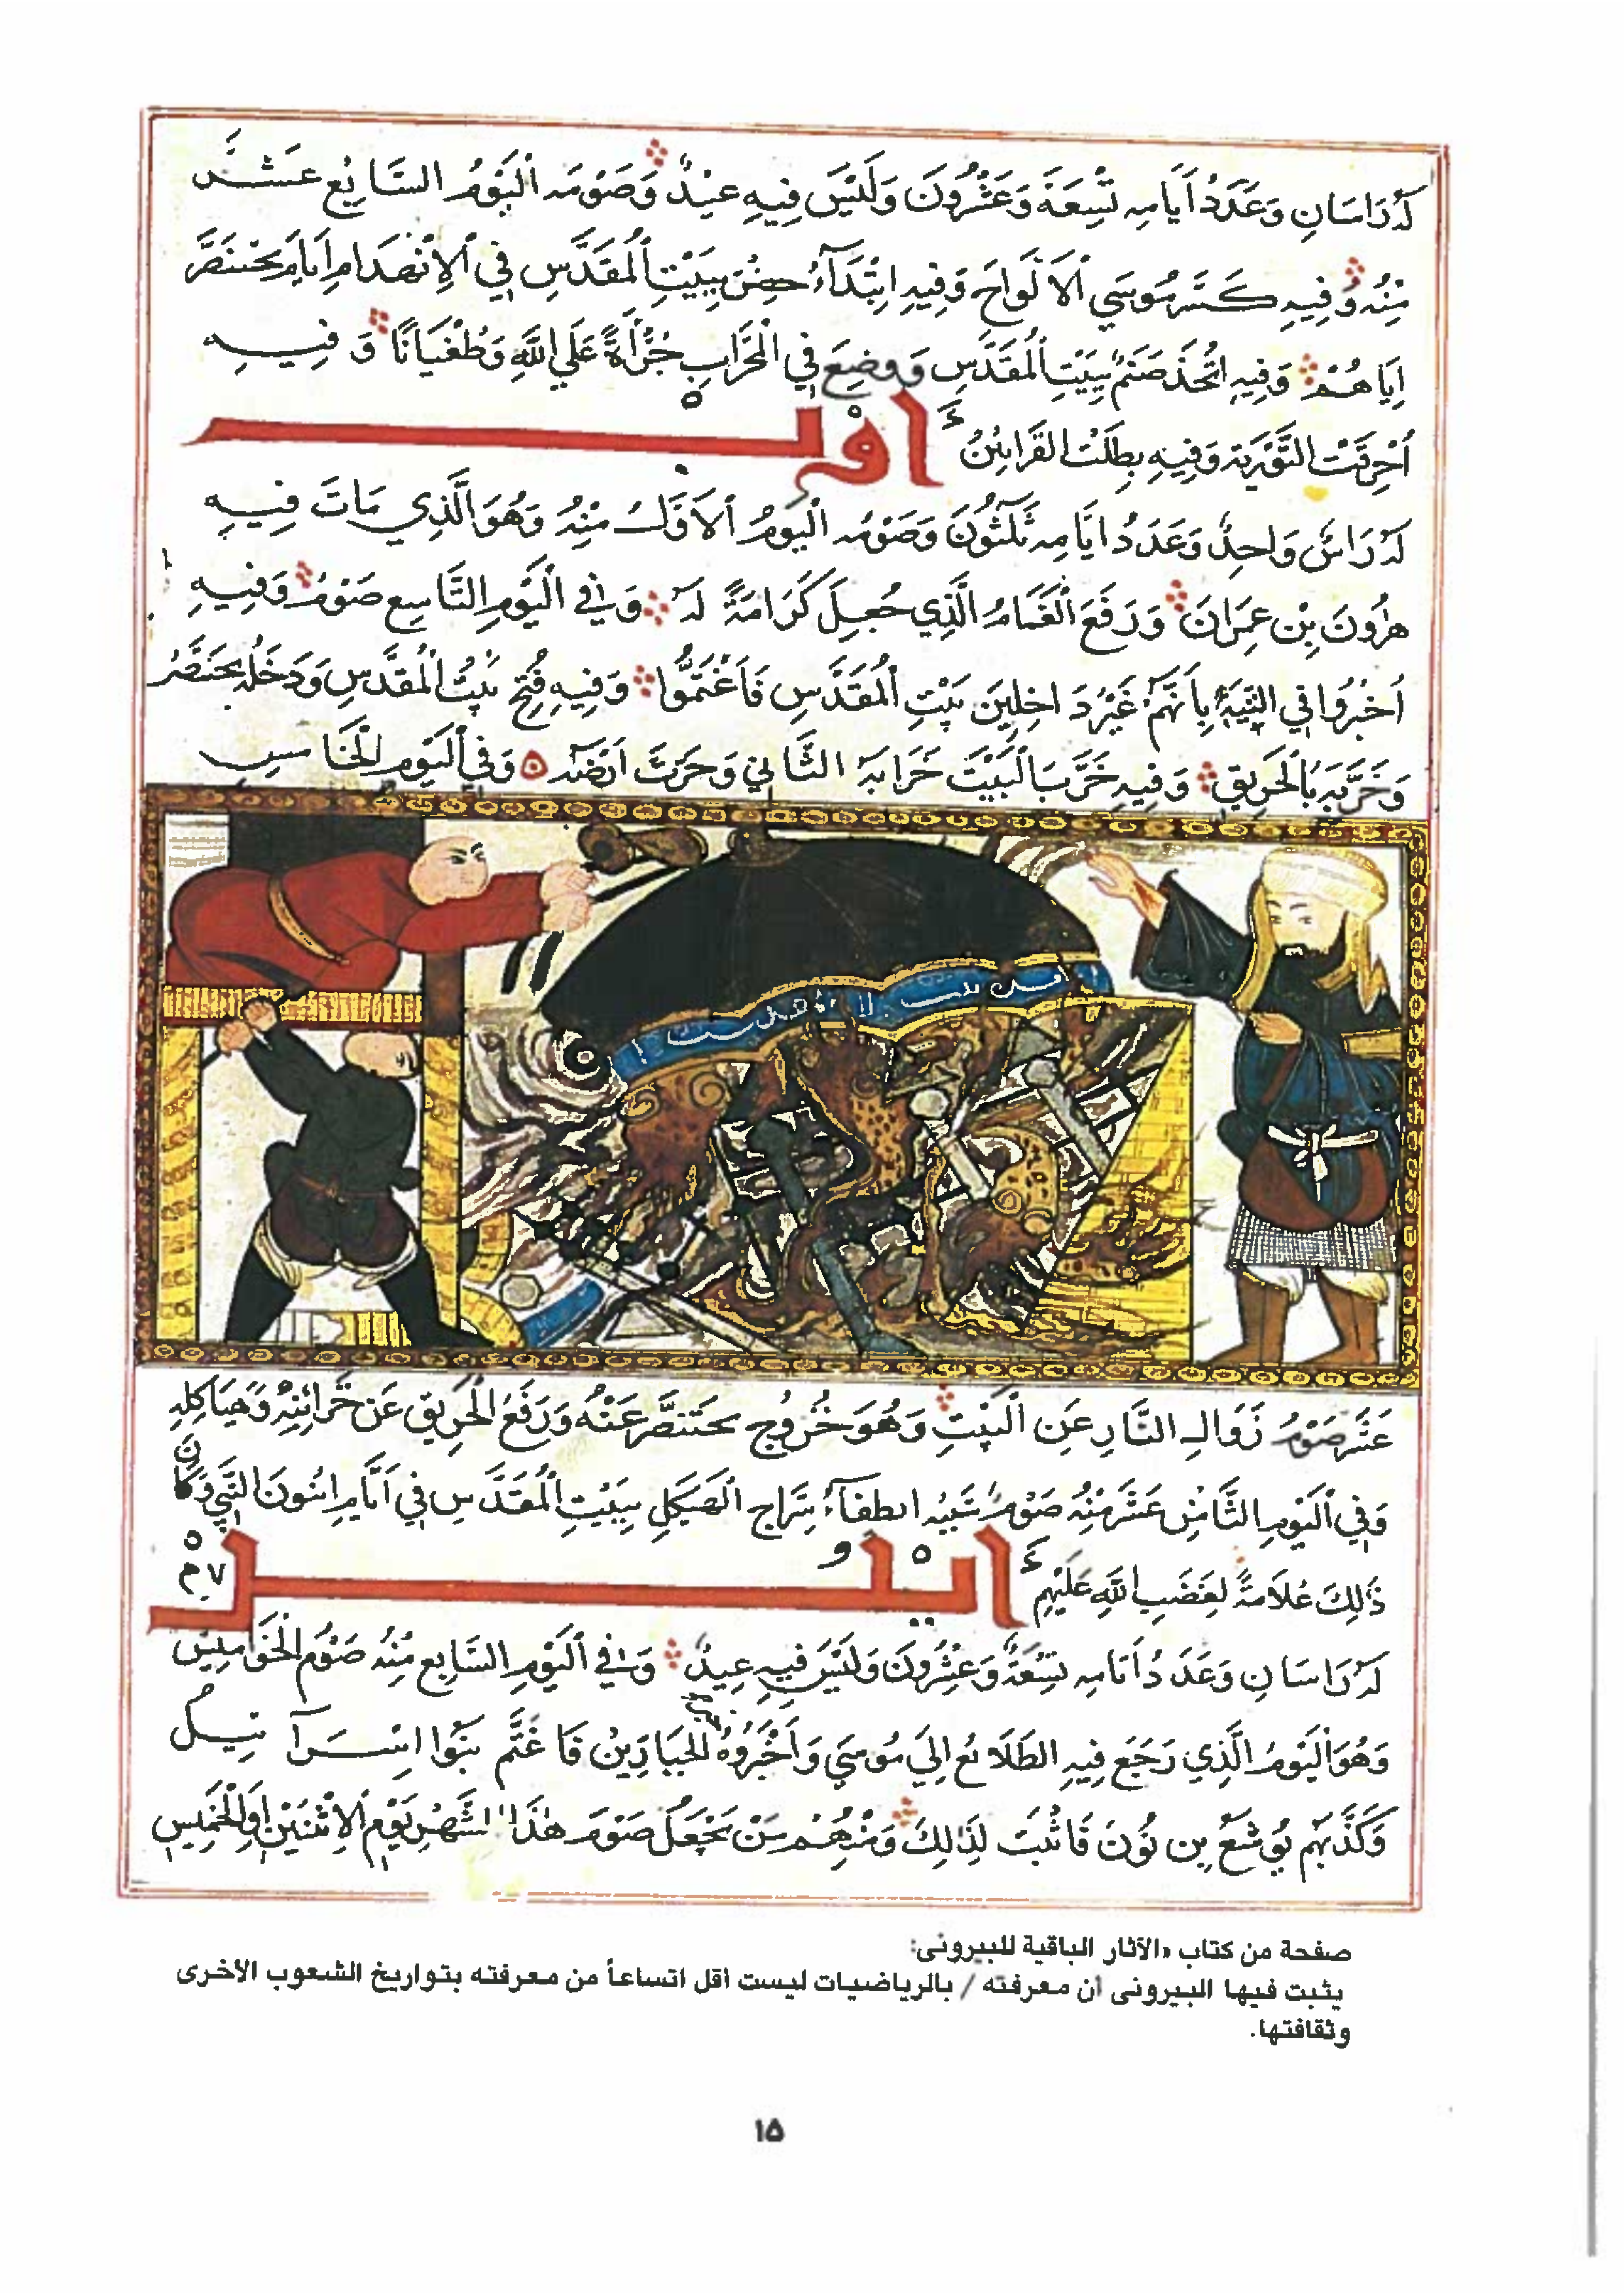 لَهُ رَاسَانِ وَعَدَدُ أَيَامِهِ تِسْعَةٌ وَعِشْرُونَ وَلَيْسَ فِيهِ عِيْدٌ وَصَوْمُهُ الْيَوْمُ السَّابِعُ عَشَرَ
مِنْهُ وَفِيهِ كَسَرَ مُوسَي الْأَلْوَاحَ وَفِيهِ ابْتَدَآءُ حِصْنِ بِبَيْتِ الْمُقَدَّسِ فِي الْاِنْهِدَامِ اَيَامَ بُحْتَنَصَّرَ
اِيَاهُمْ وَفِيهِ اتُّخَذَ صَنَمٌ بِبَيْتِ الْمُقَدَّسِ وَوضِعَ فِي الْمِحْرَابِ جُرْأَةً عَلَي اللَّهِ وَطُغْيَانًا وَ فِيهِ
اُحْرِقَتْ التَّوْرِيَةُ وَفِيهِ بَطَلَتْ الْقَرَابِيْنُ اوْبـ
لَهُ رَاسٌ وَاحِدٌ وَعَدَدُ ايَامِهِ ثَلَثُونَ وَصَوْمُهُ الْيَوْمُ الْاَوَّلُ مِنْهُ وَهُوَ الَّذِي مَاتَ فِيهِ
هرُونَ بْنِ عِمْرَانَ وَرَفَعَ الْغَمَامُ الَّذِي جُعِلَ كَرَامَةً لَهُ وَفِي الْيَوْمِ التَّاسِعِ صَوْمٌ وَفِيهِ
اُخْبِرُوا فِي التِّيْهِ بِاَنَّهُمْ غَيْرُ دَاخِلِينَ بَيْتِ الْمُقَدَّسِ فَاَغْتَمُّوا وَفِيهِ فُتِحَ بَيْتُ الْمُقَدَّسِ وَدَخَلَهُ بُحْتَنَصَّرُ
وَخَرَّبَهُ بِالْحَرِيقِ وَفِيهِ خَرَّبَ الْبَيْتَ خَرَابَهُ الثَّانِي وَحَرَثَ اَرْضَهُ وَفِي الْيَوْمِ الْخَامِسِ
عَشَرَ صَوْمُ زَوَالِ النَّارِ عَنِ الْبَيْتِ وَهُوَ خُرُوجِ بُحْتَنَصَّرَ عَنْهُ وَرَفْعُ الْحَرِيقِ عَنْ خَزَائِنِهِ وَهَيَاكِلِهِ
وَفِي الْيَوْمِ الثَّامِنِ عَشَرَ مِنْهُ صَوْمُ سَبَبُهُ انطفَآءُ سِرَاجِ الْهَيْكَلِ بِبَيْتِ الْمُقَدَّسِ فِي اَيَّامِ اخُونَ النَّبِي وَكَانَ
ذَلِكَ عَلَامَةً لِغَضَبِ اللَّهِ عَلَيْهِمْ ايْلُـــل
لَهُ رَاسَانِ وَعَدَدُ أَيَامِهِ تِسْعَةٌ وَعِشْرُونَ وَلَيْسَ فِيهِ عِيدٌ وَفِي الْيَوْمِ السَّابِعِ مِنْهُ صَوْمُ الْخَوَامِيْسِ
وَهُوَ الْيَوْمُ الَّذِي رَجَعَ فِيهِ الطَّلَائعُ اِلَي مُوسَي وَاَخْبَرُوهُ الْجَبَارِيْنَ فَاغْتَمَّ بَنُوا اِسْرَآئِيلَ
وَكَذَّبَهُمْ يُوشَعُ بن نُونَ فَاثْبَتَ لِذَلِكَ وَمِنْهُمْ مَنْ يَجْعَلُ صَوْمَ هَذَا الشَّهْرِ يَوْمَ الْاِثْنَيْنِ اَوِالْخَمِيسِ
صفحة من كتاب «الآثار الباقية للبيرونى:
يثبت فيها البيرونى أن معرفته / بالرياضيات ليست أقل اتساعاً من معرفته بتواريخ الشعوب الأخرى
وثقافتها.
١٥